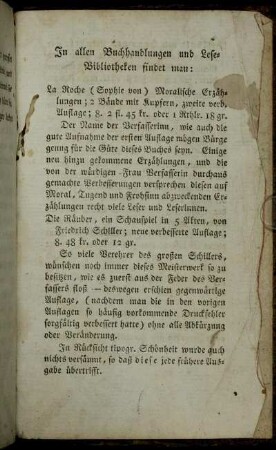 In allen Buchhandlungen und Lese-
Bibliotheken findet man:
La Roche (Sophie von) Moralische Erzäh-
lungen; 2 Bände mit Kupfern, zweite verb.
Auflage; 8. 2 fl. 45 kr. oder 1 Rthlr. 18 gr.
Der Name der Verfasserinn, wie auch die
gute Aufnahme der ersten Auflage mögen Bürge
genung für die Güte dieses Buches seyn. Einige
neu hinzu gekommene Erzählungen, und die
von der würdigen Frau Verfasserin durchaus
gemachte Verbesserungen versprechen diesen auf
Moral, Tugend und Frohsinn abzweckenden Er-
zählungen recht viele Leser und Leserinnen.
Die Räuber, ein Schauspiel in 5 Akten, von
Friedrich Schiller; neue verbesserte Auflage;
8. 48 kr. oder 12 gr.
So viele Verehrer des großen Schillers,
wünschen noch immer dieses Meisterwerk so zu
besitzen, wie es zuerst aus der Feder des Ver-
fassers floß — deswegen erschien gegenwärtige
Auflage, (nachdem man die in den vorigen
Auflagen so häufig vorkommende Druckfehler
sorgfältig verbessert hatte) ohne alle Abkürzung
oder Veränderung.
In Rücksicht tipogr. Schönheit wurde auch
nichts versäumt, so daß diese jede frühere Aus-
gabe übertrifft.